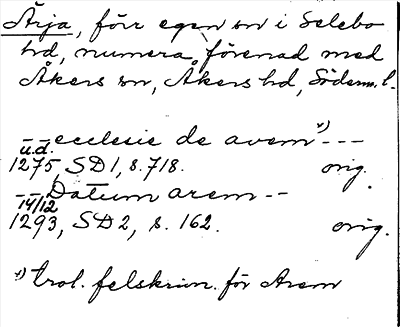 Ärja, förr egen sn i Selebo
hd, numera förenad med
Åkers sn, Åkers hd, Söderm. l.
-- ecclesie de avem x) ---
u.d.
1275, SD 1, s. 718. orig.
-- Datum arem --
14/12
1293, SD 2, s. 162. orig.
x) trol. felskrivn. för Arem